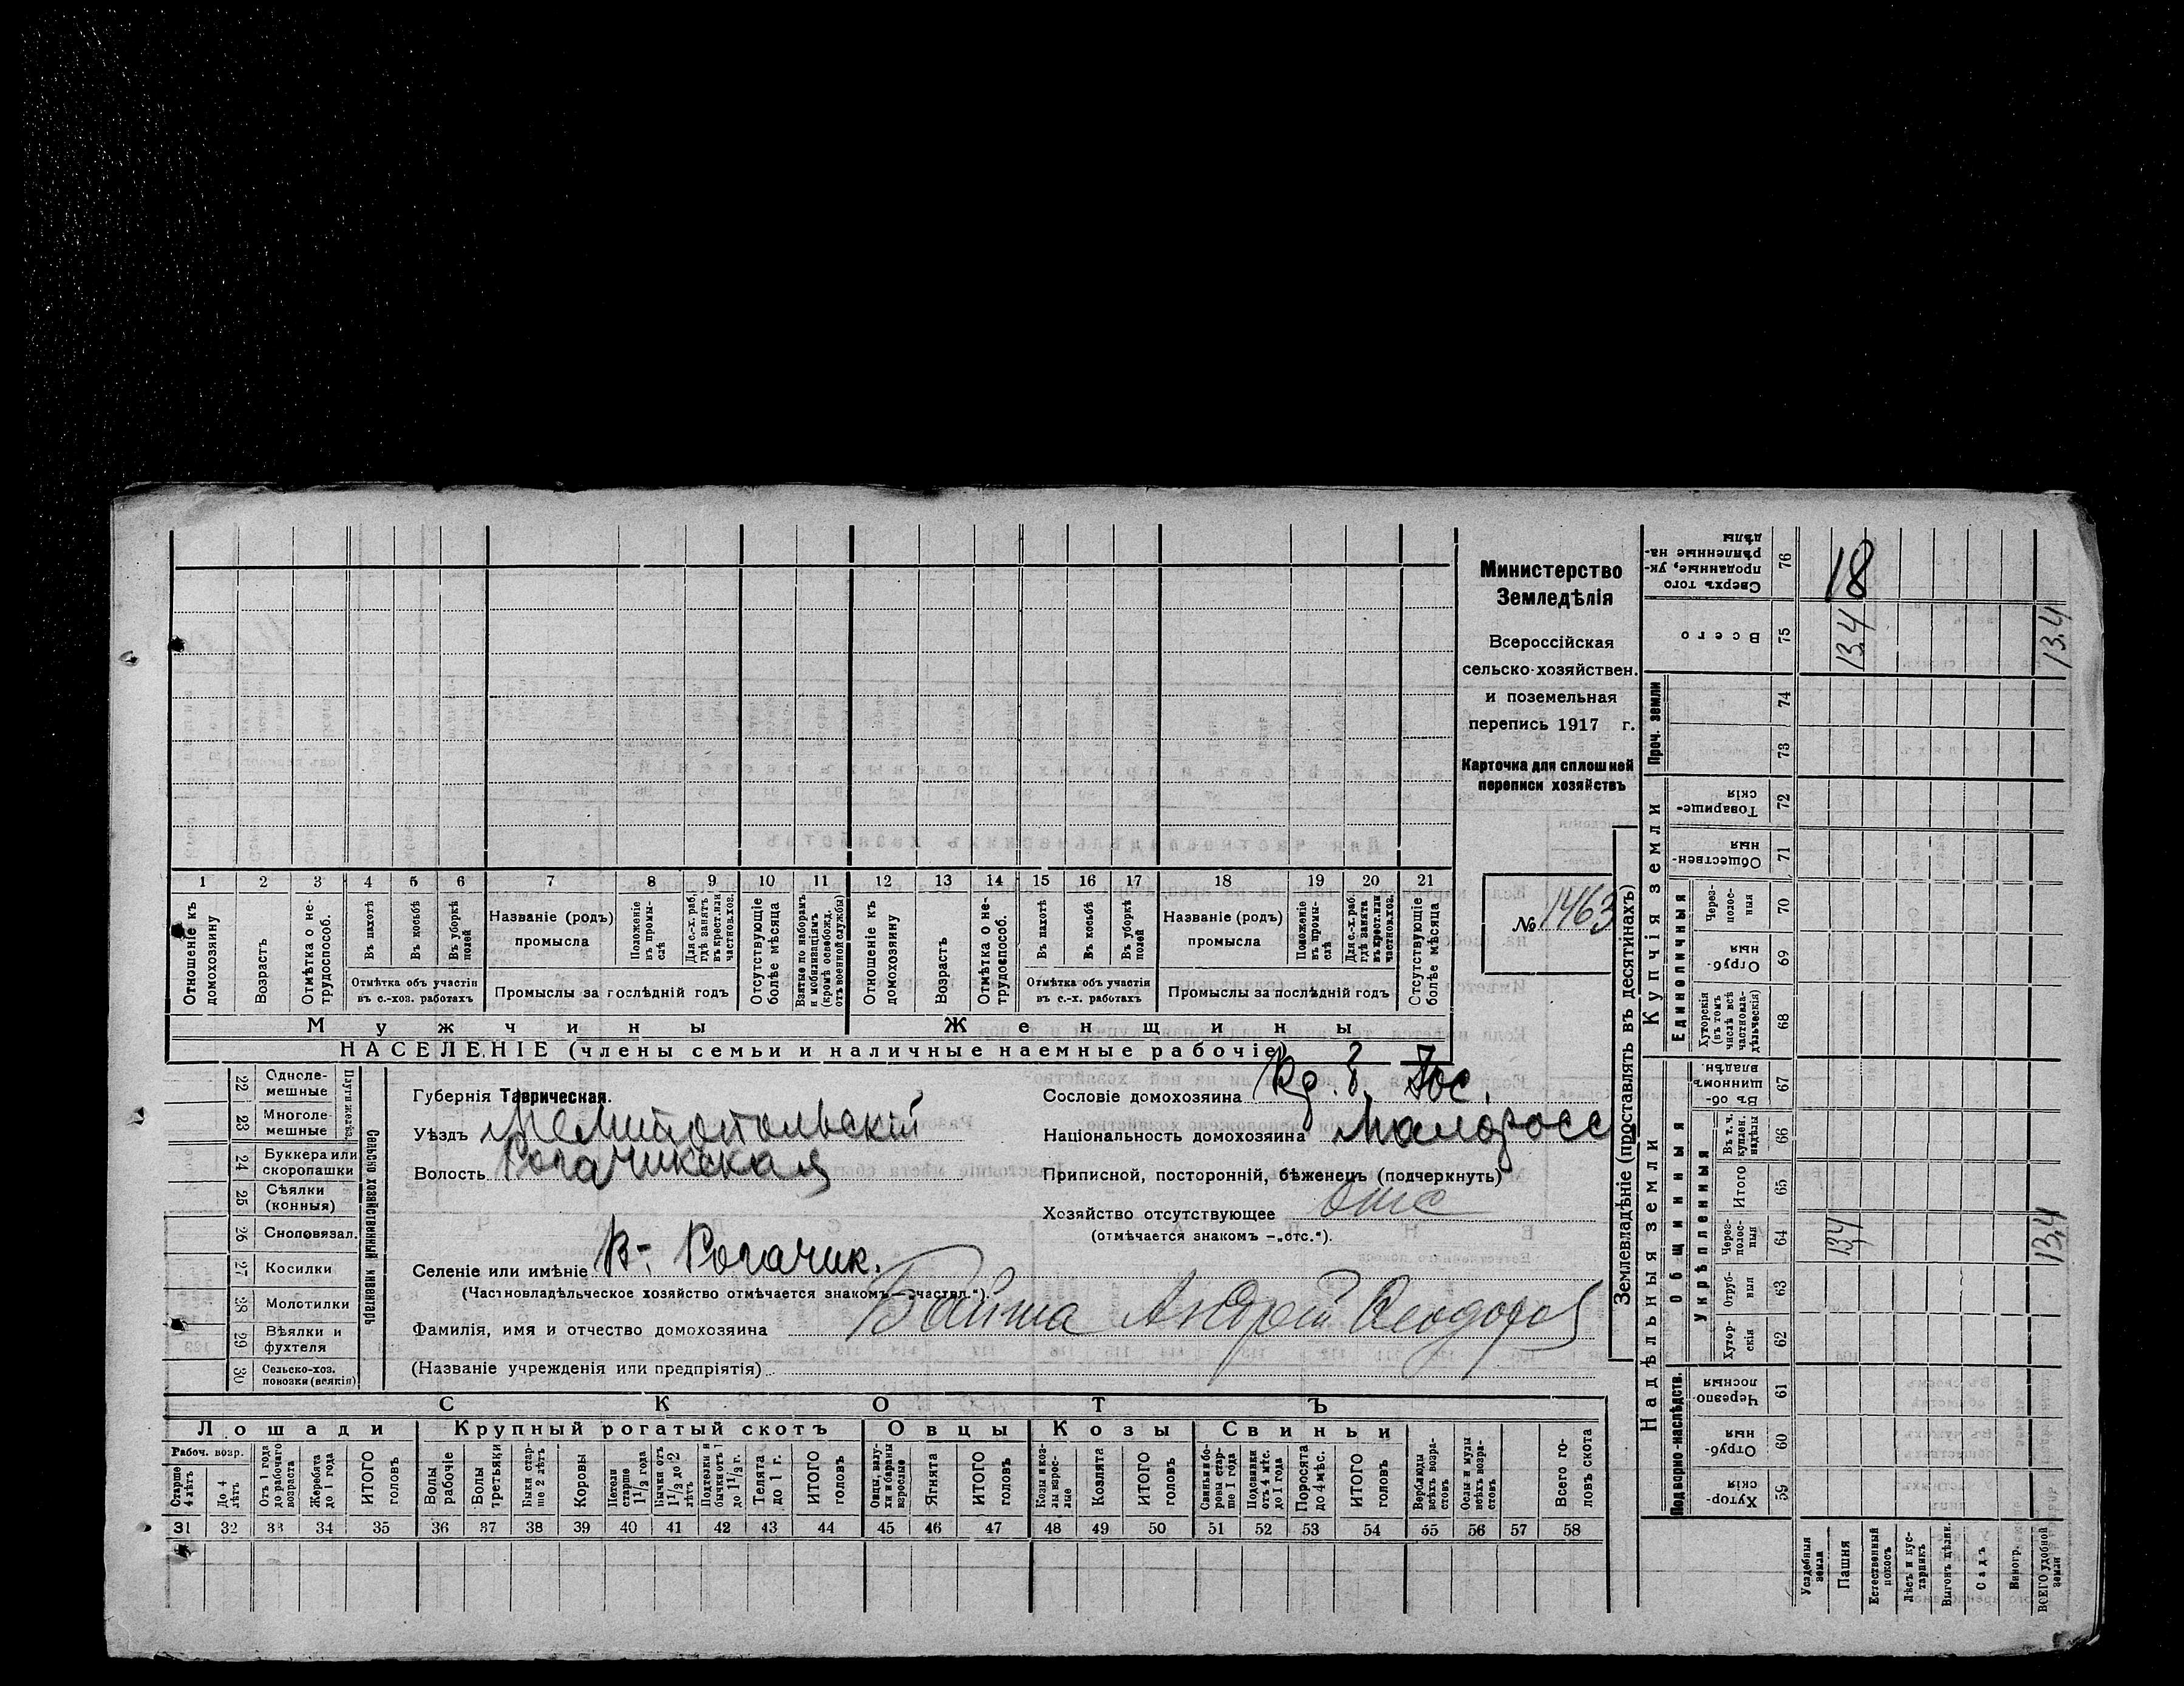 Министерство
Земледѣлія
Всероссійская
сельско-хозяйствен.
и поземельная
перепись 1917 г.
Карточка для сплошной
переписи хозяйствъ
№ 1463
1 2 3 4 5 6 7 8 9 10 11 12 13 14 15 16 17 18 19 20 21
Отношеніе къ домохозяину
Возрастъ
Отмѣтка о нетрудоспособ.
Въ пахотѣ
Въ косьбѣ
Въ уборкѣ полей
Отмѣтка объ участіи
въ с.-хоз. работахъ
Названіе (родъ)
промысла
Положеніе въ промыслѣ
Для с.-х. раб. гдѣ занятъ въ крест. или частнов. хоз.
Промыслы за послѣдній годъ
Отсутствующіе болѣе мѣсяца
Взятые по наборамъ и мобилизаціямъ (кромѣ освобожд. отъ военной службы)
Отношеніе къ домохозяину
Возрастъ
Отмѣтка о нетрудоспособ.
Въ пахотѣ
Въ косьбѣ
Въ уборкѣ полей
Отмѣтка объ участіи
въ с.-х. работахъ
Названіе (родъ)
промысла
Положеніе въ промыслѣ
Для с.-х. раб. гдѣ занята въ крест. или частнов. хоз.
Промыслы за послѣдній годъ
Отсутствующіе болѣе мѣсяца
Мужчины Женщины
НАСЕЛЕНІЕ (члены семьи и наличные наемные рабочіе)
Сельско-хозяйственный инвентарь
Плуги желѣз.
22 Одноле-
мешные
23 Многоле-
мешные
24 Буккера или
скоропашки
25 Сѣялки
(конныя)
26 Сноповязал.
27 Косилки
28 Молотилки
29 Вѣялки и
фухтеля
30 Сельско-хоз.
повозки (всякія)
Губернія Таврическая.
Уѣздъ Мелитопольскій
Волость Рогачикская
Селеніе или имѣніе В- Рогачик.
(Частновладѣльческое хозяйство отмѣчается знакомъ—„частвл.“).
Фамилія, имя и отчество домохозяина Байша Андрей Феодоров
(Названіе учрежденія или предпріятія)
Сословіе домохозяина
Національность домохозяина Малоросс
Приписной, посторонній, бѣженецъ (подчеркнуть)
Хозяйство отсутствующее отс
(отмѣчается знакомъ —„отс.“).
СКОТЪ
Лошади Крупный рогатый скотъ Овцы Козы Свиньи
Рабоч. возр.
Старше 4 лѣтъ
До 4 лѣтъ
Отъ 1 года до рабочаго возраста
Жеребята до 1 года
ИТОГО головъ
Волы рабочіе
Волы третьяки
Быки старше 2 лѣтъ
Коровы
Нетели старше 1 1/2 года
Бычки отъ 1 1/2 до 2 лѣтъ
Подтелки и бычки отъ 1 до 1 1/2 г.
Телята до 1 г.
ИТОГО головъ
Овцы, валухи и бараны взрослые
Ягнята
ИТОГО головъ
Козы и козлы взрослые
Козлята
ИТОГО головъ
Свиньи и боровы старше 1 года
Подсвинки отъ 4 мѣс. до 1 года
Поросята до 4 мѣс.
ИТОГО головъ
Верблюды всѣхъ возрастовъ
Ослы и мулы всѣхъ возрастовъ
Всего головъ скота
31 32 33 34 35 36 37 38 39 40 41 42 43 44 45 46 47 48 49 50 51 52 53 54 55 56 57 58
Землевладѣніе (проставлять въ десятинахъ)
Надѣльныя земли
Купчія земли
Проч. земли
Подворно-наслѣдств.
Общинныя
Укрѣпленныя
Единоличныя
Сверхъ того проданные, укрѣпленные надѣлы 76 18
Всего 75 13,4 13,4
74
73
Товарищескія 72
Общественныя 71
Черезполосныя 70
Отрубныя 69
Хуторскія (въ томъ числѣ всѣ частновладѣльческія) 68
Въ общинномъ владѣн. 67
Въ т. ч. куплен. надѣлы 66
Итого 65
Черезполосныя 64 13,4 13,4
Отрубныя 63
Хуторскія 62
Черезполосныя 61
Отрубныя 60
Хуторскія 59
Усадебныя земли
Пашня
Естественный покосъ
Лѣсъ и кустарникъ
Выгонъ цѣлин.
Садъ
Виногр.
ВСЕГО удобной земли